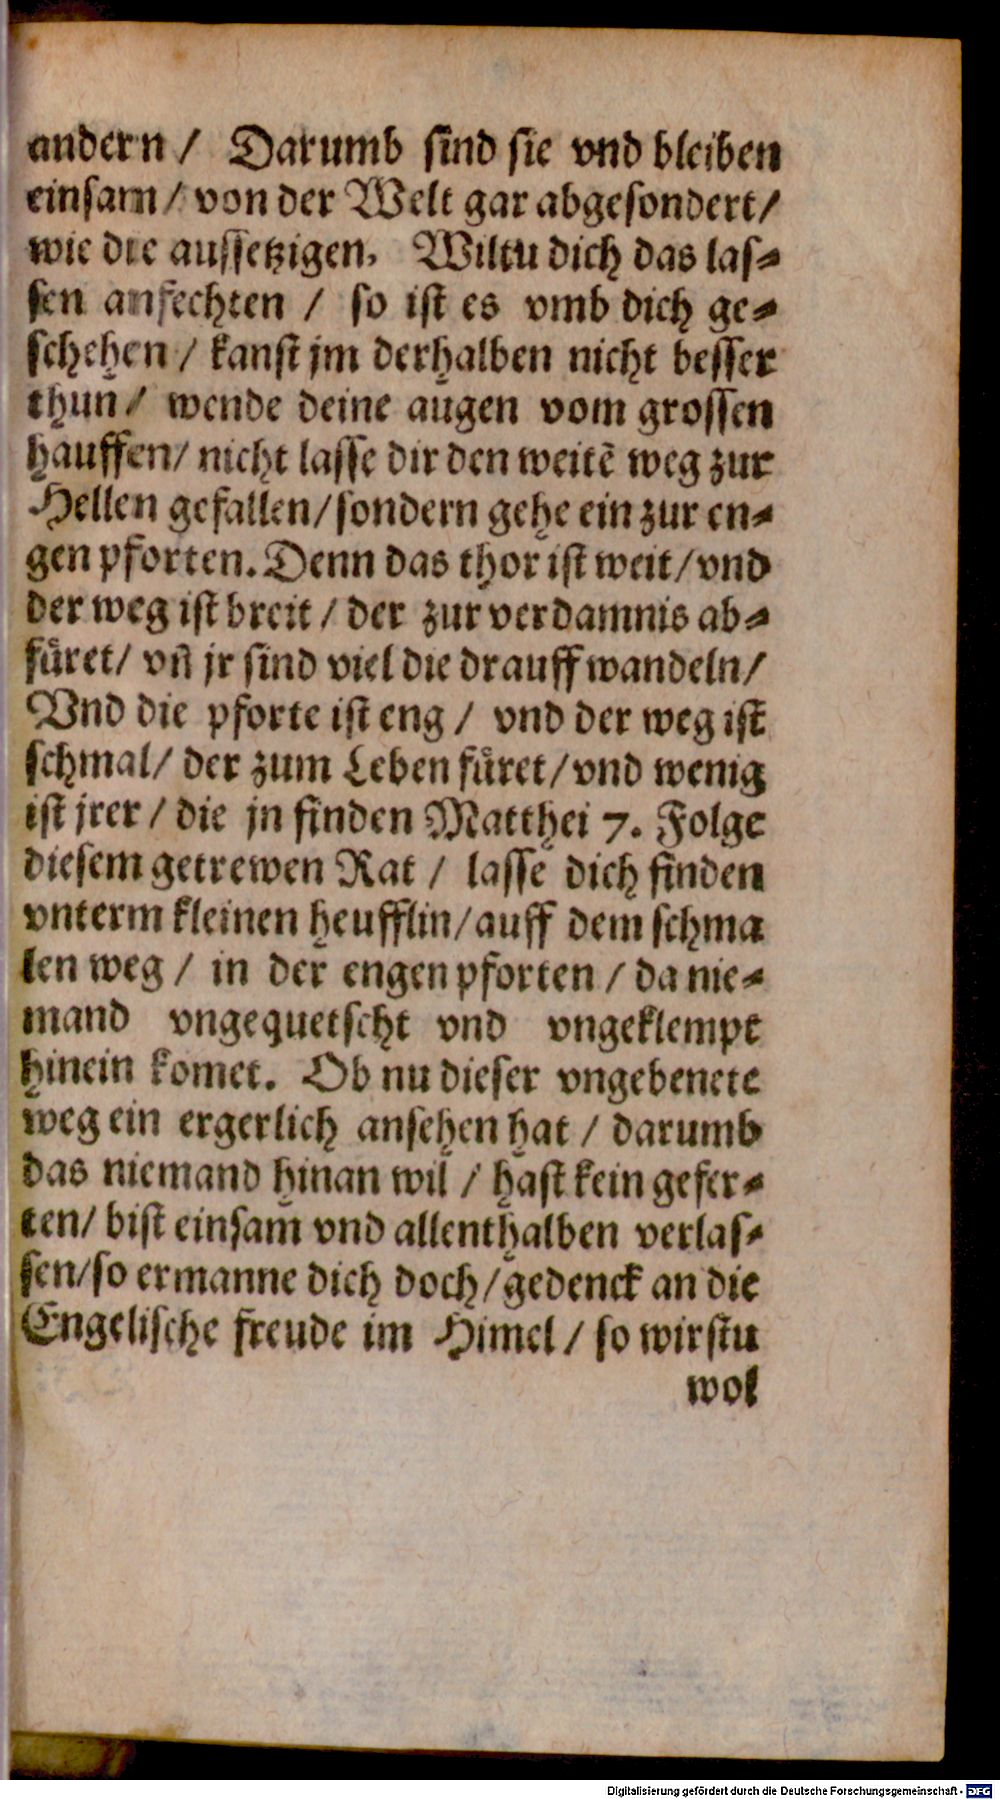 andern / Darumb sind sie vnd bleiben
einsam / von der Welt gar abgesondert /
wie die aussetzigen. Wiltu dich das las-
sen anfechten / so ist es vmb dich ge-
schehen / kanst jm derhalben nicht besser
thun / wende deine augen vom grossen
hauffen / nicht lasse dir den weitẽ weg zur
Hellen gefallen / sondern gehe ein zur en-
gen pforten. Denn das thor ist weit / vnd
der weg ist breit / der zur verdamnis ab-
fuͤret / vñ jr sind viel die drauff wandeln /
Vnd die pforte ist eng / vnd der weg ist
schmal / der zum Leben fuͤret / vnd wenig
ist jrer / die jn finden Matthei 7. Folge
diesem getrewen Rat / lasse dich finden
vnterm kleinen heufflin / auff dem schma
len weg / in der engen pforten / da nie-
mand vngequetscht vnd vngeklempt
hinein komet. Ob nu dieser vngebenete
weg ein ergerlich ansehen hat / darumb
das niemand hinan wil / hast kein gefer-
ten / bist einsam vnd allenthalben verlas-
sen / so ermanne dich doch / gedenck an die
Engelische freude im Himel / so wirstu
wol
Digitalisierung gefördert durch die Deutsche Forschungsgemeinschaft - DFG